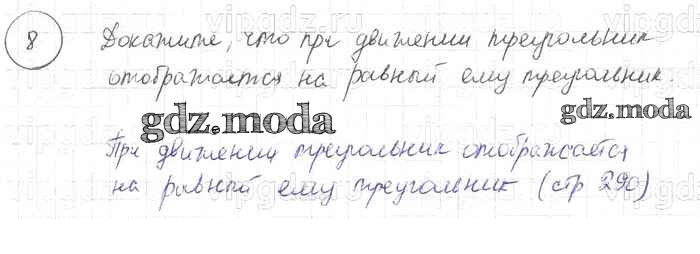 vipgdz.ru
8 Докажите, что при движении треугольник
отображается на равный ему треугольник.
gdz.moda
gdz.moda
При движении треугольник отображается
на равный ему треугольник (стр 290)
vipgdz